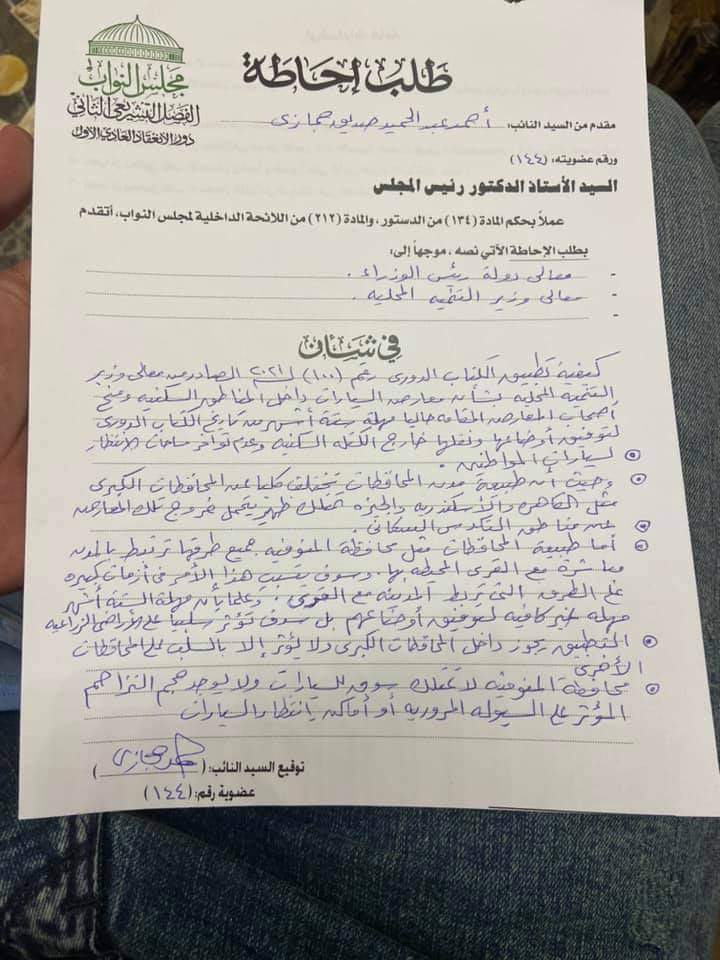 مجلس النواب
الفصل التشريعى الثانى
دور الانعقاد العادى الأول
طلب إحاطة
مقدم من السيد النائب: أحمد عبد الحميد صديق حجازى
ورقم عضويته: (١٤٤)
السيد الأستاذ الدكتور رئيس المجلس
عملاً بحكم المادة (١٣٤) من الدستور، والمادة (٢١٢) من اللائحة الداخلية لمجلس النواب، أتقدم
بطلب الإحاطة الآتي نصه، موجهاً إلى:
- معالى دولة رئيس الوزراء.
- معالى وزير التنميه المحليه.
-
في شأن
كيفية تطبيق الكتاب الدورى رقم (١٠٠) لسنه ٢٠٢١ الصادر من معالى وزير
التنميه المحليه بشأن معارض السيارات داخل المناطق السكنيه ومنح
أصحاب المعارض المقامه حاليا مهلة ستة أشهر من تاريخ الكتاب الدورى
لتوفيق أوضاعها ونقلها خارج الكتله السكنيه وعدم توافر ساحات الانتظار
لسيارات المواطنين.
وحيث أن طبيعة مدن المحافظات تختلف كليا عن المحافظات الكبرى
مثل القاهره والأسكندريه والجيزه تمتلك ظهير يتحمل خروج تلك المعارض
عن مناطق التكدس السكانى.
أما طبيعة المحافظات مثل محافظة المنوفيه جميع طرقها ترتبط بالمدن
مباشرة مع القرى المحيطه بها. وسوف يتسبب هذا الأمر فى أزمات كبيره
على الطرق التى تربط المدينه مع القرى، وعلما بأن مهلة الستة أشهر
مهله غير كافيه لتوفيق أوضاعهم بل سوف تؤثر سلبيا على الأراضى الزراعيه
التطبيق يجوز داخل المحافظات الكبرى ولا يؤثر إلا بالسلب على المحافظات
الأخرى
محافظة المنوفيه لا تمتلك سوق للسيارات ولا يوجد حجم التزاحم
المؤثر على السيوله المروريه أو أماكن انتظار السيارات
توقيع السيد النائب: (حجازى)
عضوية رقم: (١٤٤)